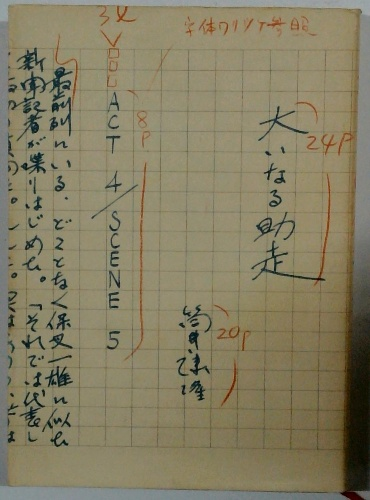 字体ワリツケ参照
大いなる助走
24P
筒井康隆
20P
ACT 4/SCENE 5
8P
最前列にいる、どことなく保叉一雄に似た
新聞記者が喋りはじめた。「それでは代表し